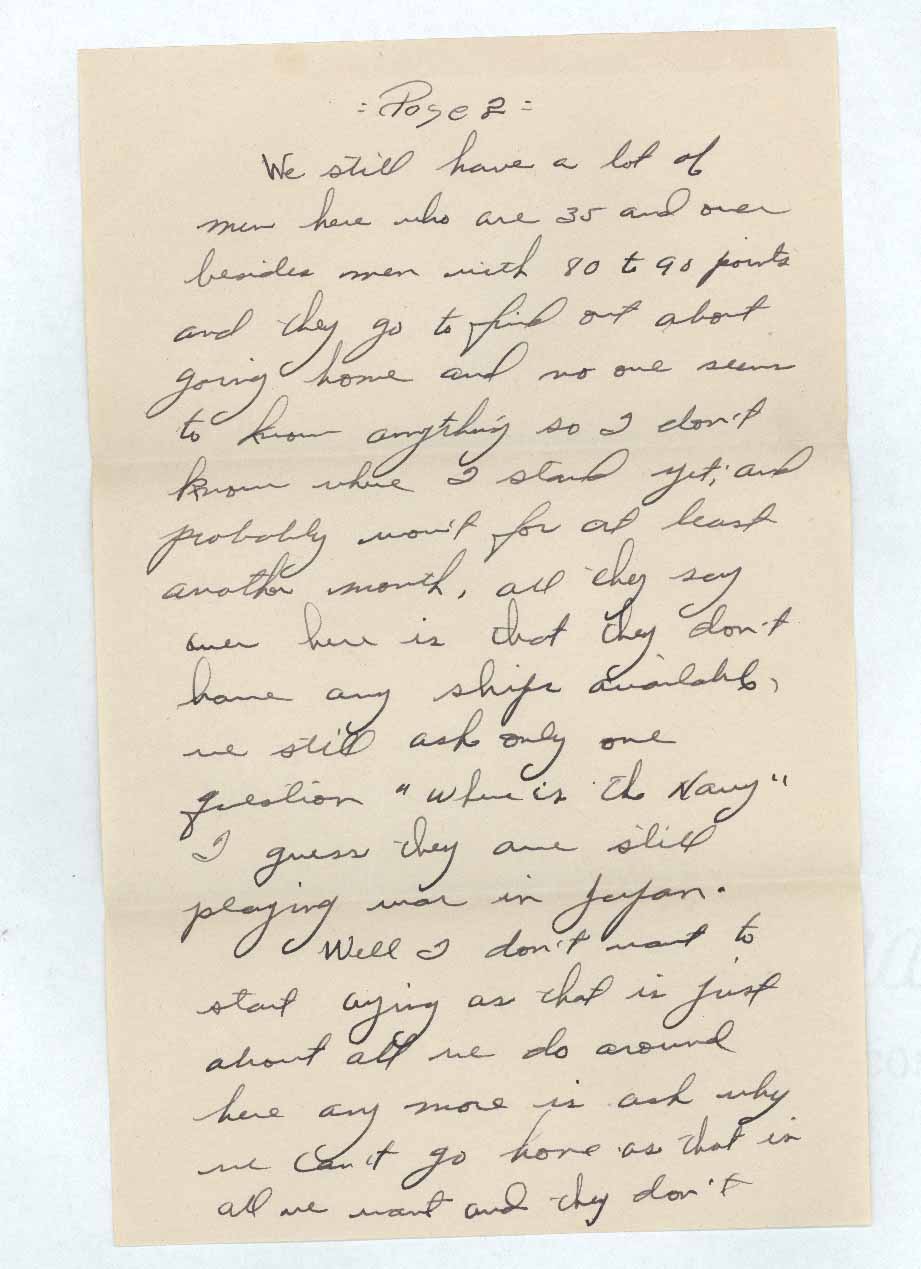 = Page 2 =
We still have a lot of
men here who are 35 and over
besides men with 80 to 90 points
and they go to find out about
going home and no one seems
to know anything so I don't
know where I stand yet, and
probably won't for at least
another month, all they say
over here is that they don't
have any ships available,
we still ask only one
question "Where is the Navy"
I guess they are still
playing war in Japan.
Well I don't want to
start crying as that is just
about all we do around
here any more is ask why
we can't go home as that is
all we want and they don't